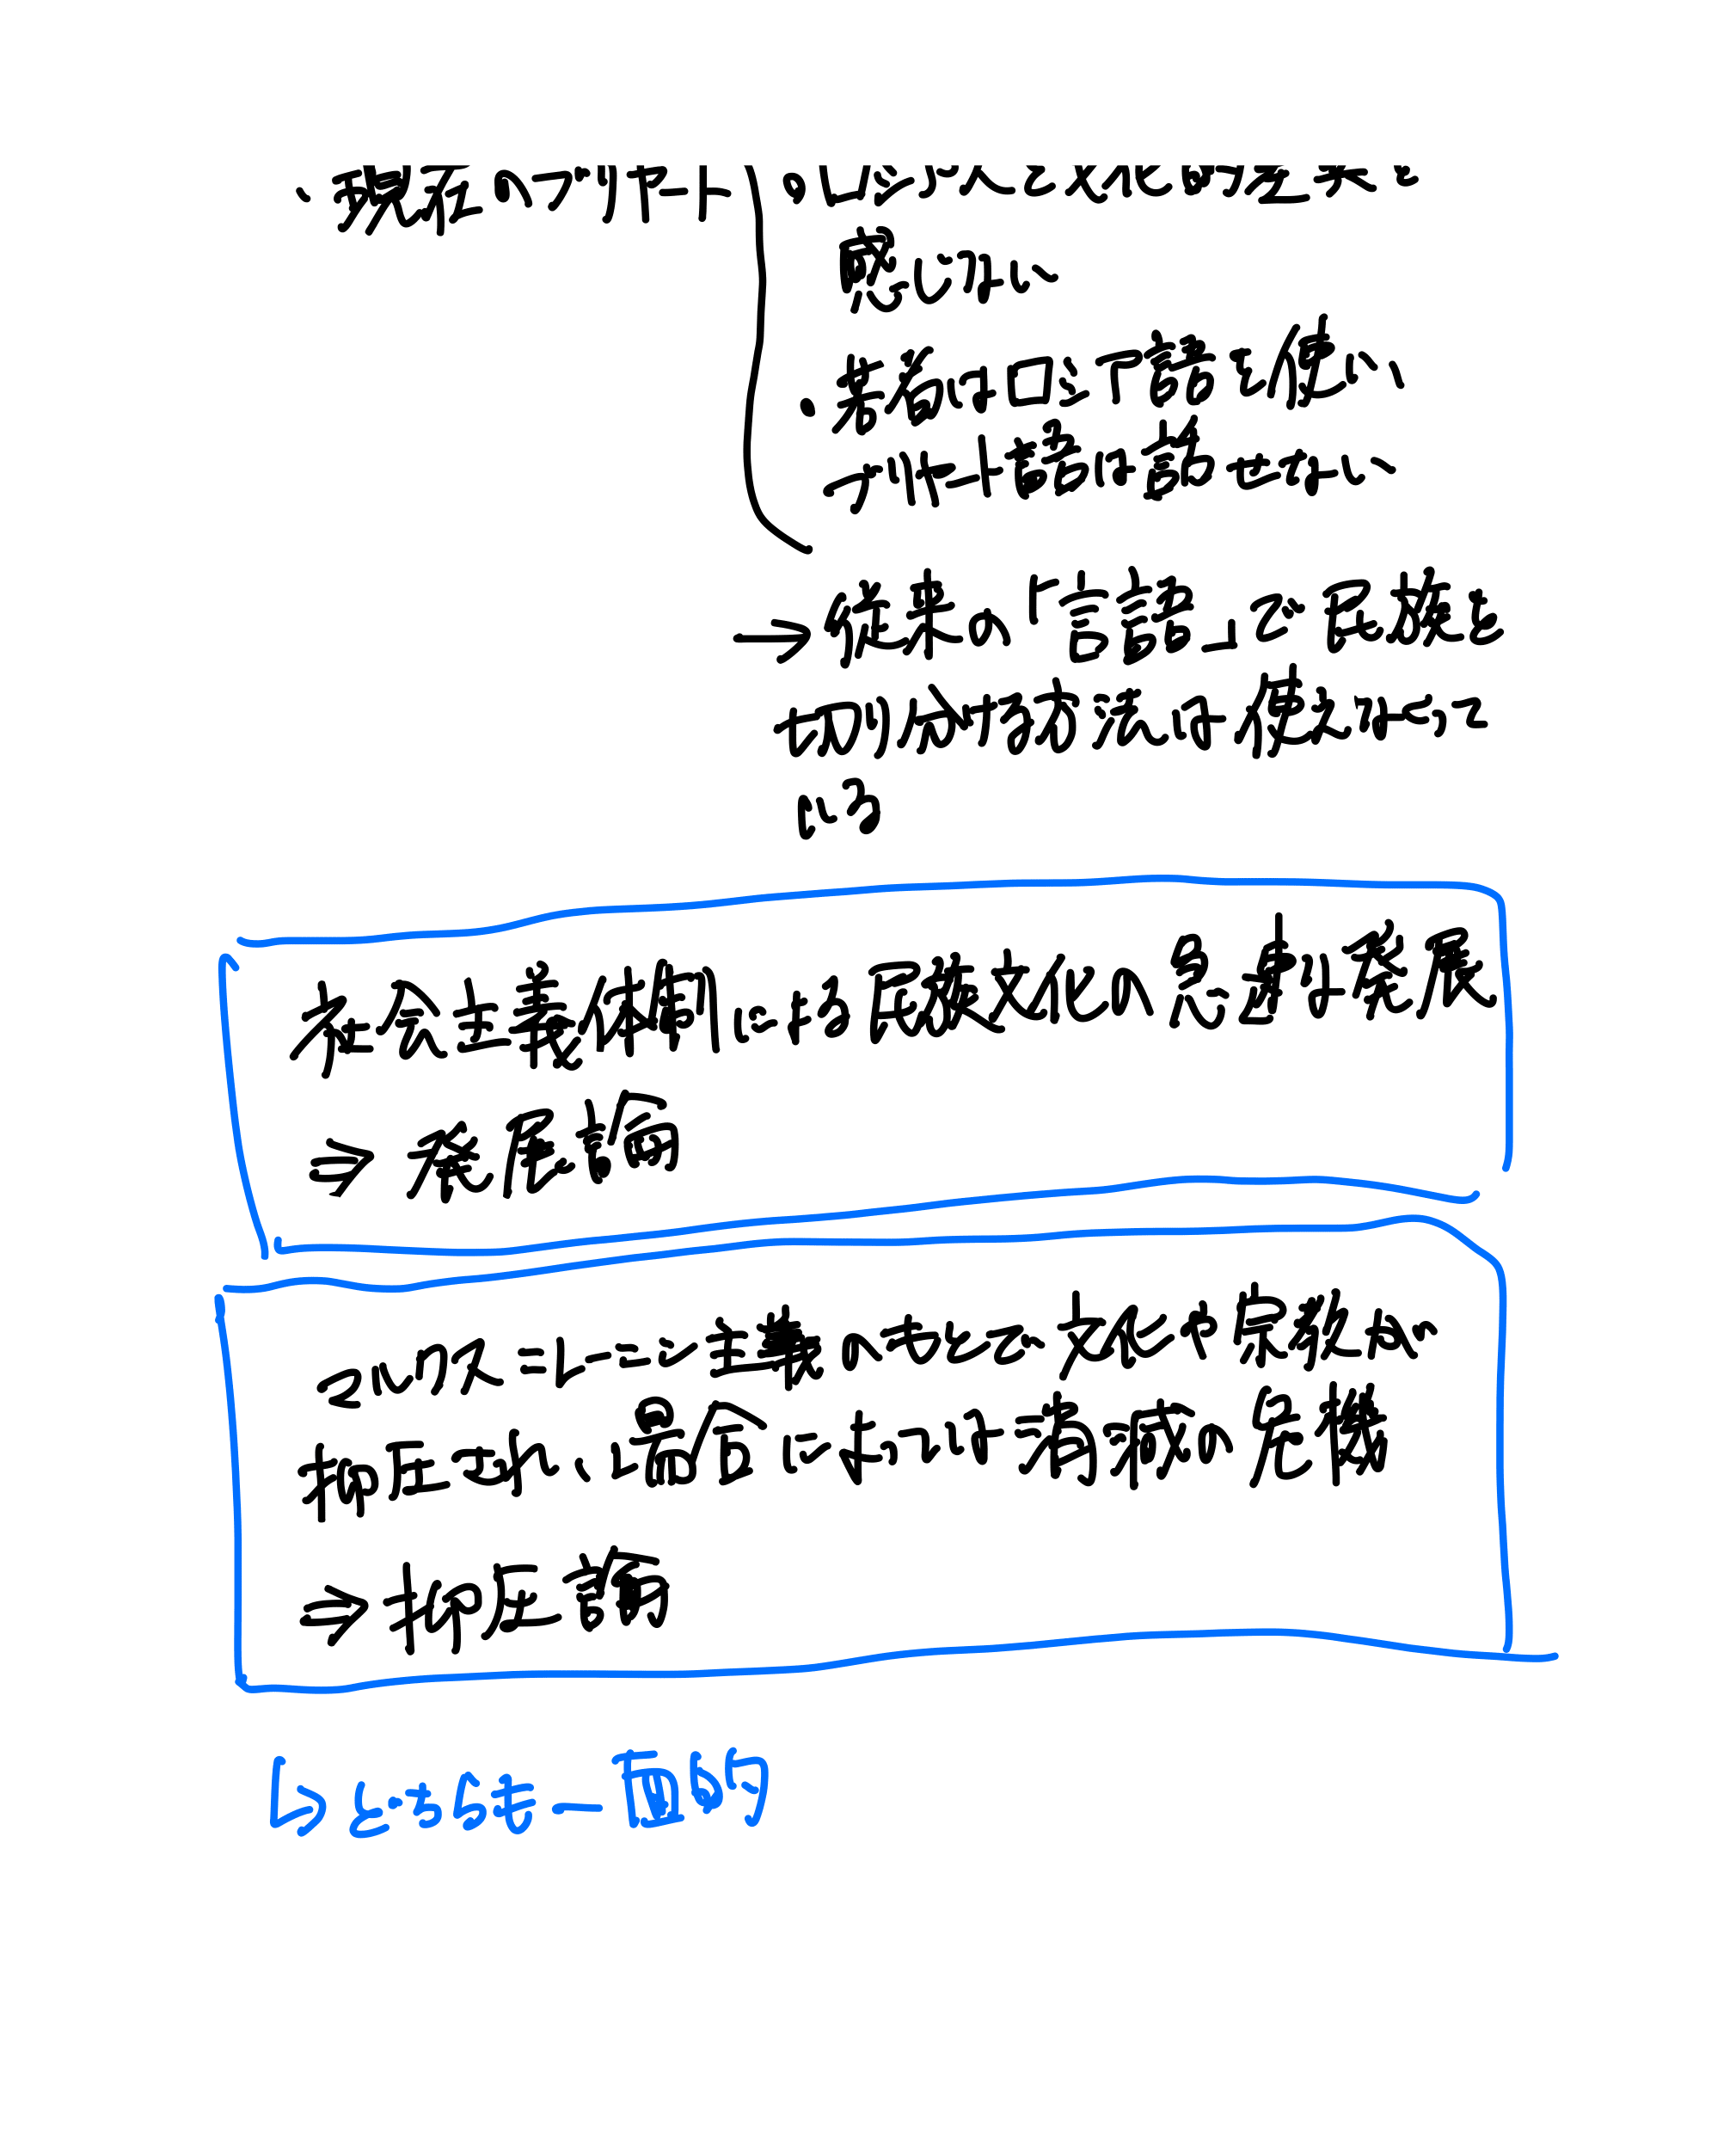 ・現在のブリヤート ・ しゃべんと文化的な差異を
感じない
・若者はロシア語を使い
ブリヤート語は話せない
→従来の「言語」で民族を
切り分ける方法は使えなくなって
いる
社会主義体制による民族文化の急速な発展
⇒発展論
マルクス=レーニン主義のもとで文化や宗教が
抑圧され、場合によっては消滅の危機
⇒抑圧論
↳どちらも一面的